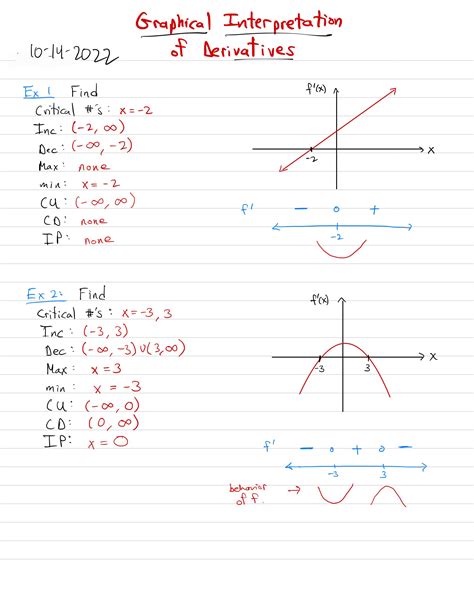 Graphical Interpretation
of Derivatives
10-14-2022
Ex 1 Find
Critical #'s: x=-2
Inc: (-2, ∞)
Dec: (-∞, -2)
Max: none
min: x=-2
CU: (-∞, ∞)
CD: none
IP: none
f'(x)
x
-2
f' − 0 +
-2
Ex 2: Find
Critical #'s: x=-3, 3
Inc: (-3, 3)
Dec: (-∞, -3)U(3,∞)
Max: x=3
min: x = -3
CU: (-∞, 0)
CD: (0, ∞)
IP: x=0
f'(x)
x
-3 3
f' − 0 + 0 −
-3 3
behavior
of f.